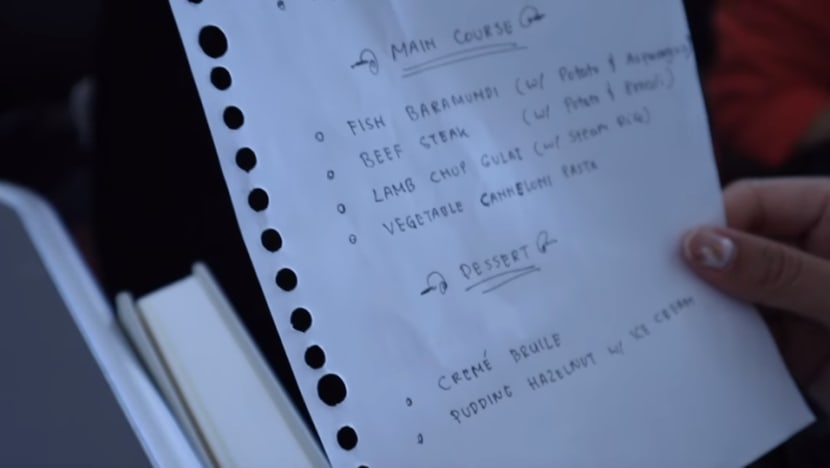 MAIN COURSE
FISH BARAMUNDI (w/ Potato & Asparagus)
BEEF STEAK (w/ Potato & Brocoli)
LAMB CHOP GULAI (w/ Steam Rice)
VEGETABLE CANNELONI PASTA
DESSERT
CREMÉ BRUILE
PUDDING HAZELNUT w/ ICE CREAM